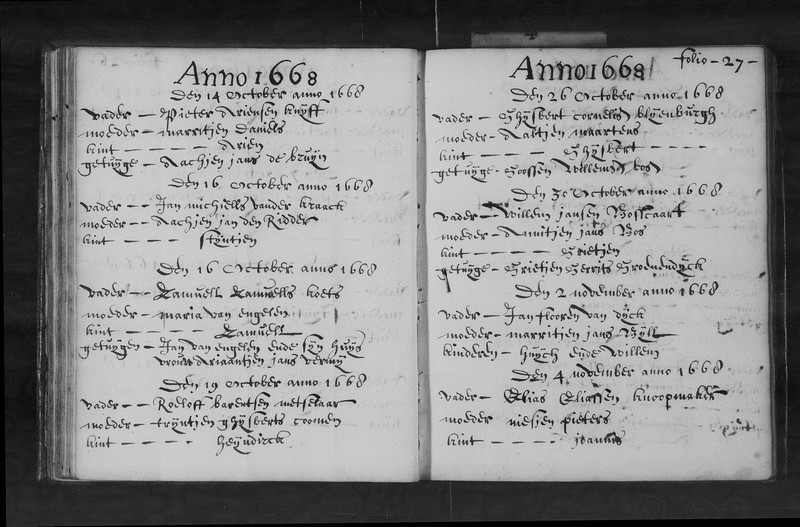 Anno 1668
Den 14 October anno 1668
vader — Pieter Ariensen kuyff
moeder — marritjen Daniels
kint — — — — Arien
getuyge — Aachjen jans de bruyn
Den 16 October anno 1668
vader — Jan michiells vander kraack
moeder — Aachjen jan den Ridder
kint — — — — stijntjen
Den 16 October anno 1668
vader — Samuell Samuells koets
moeder — maria van engelen
kint — — — — Samuell
getuygen — Jan van engelen ende syn huys
vrouw Ariaantjen jans
Den 19 October anno 1668
vader — Roeloff barentsen metselaar
moeder — tryntjen ghysberts coomen
kint — — — — heyndrick
Anno 1668 folio - 27 -
Den 26 October anno 1668
vader — Ghysbert cornelis blyenburgh
moeder - Aaltjen maartens
kint — — — — Ghysbert — — — —
getuyge - Goossen Willemsz bos
Den 30 October anno 1668
vader — Willem jansen Bosscaart
moeder - Annitjen jans Bos
kint — — — — Grietjen
getuyge — Grietjen Gerrits Groenendyck
Den 2 november anno 1668
vader — Jan flooren van dyck
moeder — marritjen jans Byll
kinderen — huych ende Willem
Den 4 november anno 1668
vader — Elias Eliassen knoopmaker
moeder niesjen pieters
kint — — — — joannis